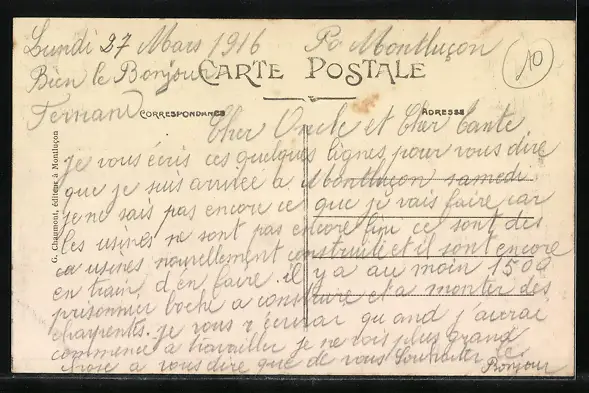 Lundi 27 Mars 1916 Po Montluçon
Bien le Bonjour
CARTE POSTALE
10
Fernand
CORRESPONDANCE
ADRESSE
Cher Oncle et Cher Tante
je vous écris ces quelques lignes pour vous dire
que je suis arrivée a Montluçon samedi
je ne sais pas encore ce que je vais faire car
les usines ne sont pas encore fini ce sont des
usines nouvellement construite et il sont encore
en train d'en faire. il y a au moin 1500
prisonnier boche a construire et a monter des
charpentes. je vous r écrirar quand j'aurai
commencé a travailler je ne vois plus grand
chose a vous dire que de vous souhaiter le
Bonjour
G. Chaumont, éditeur à Montluçon